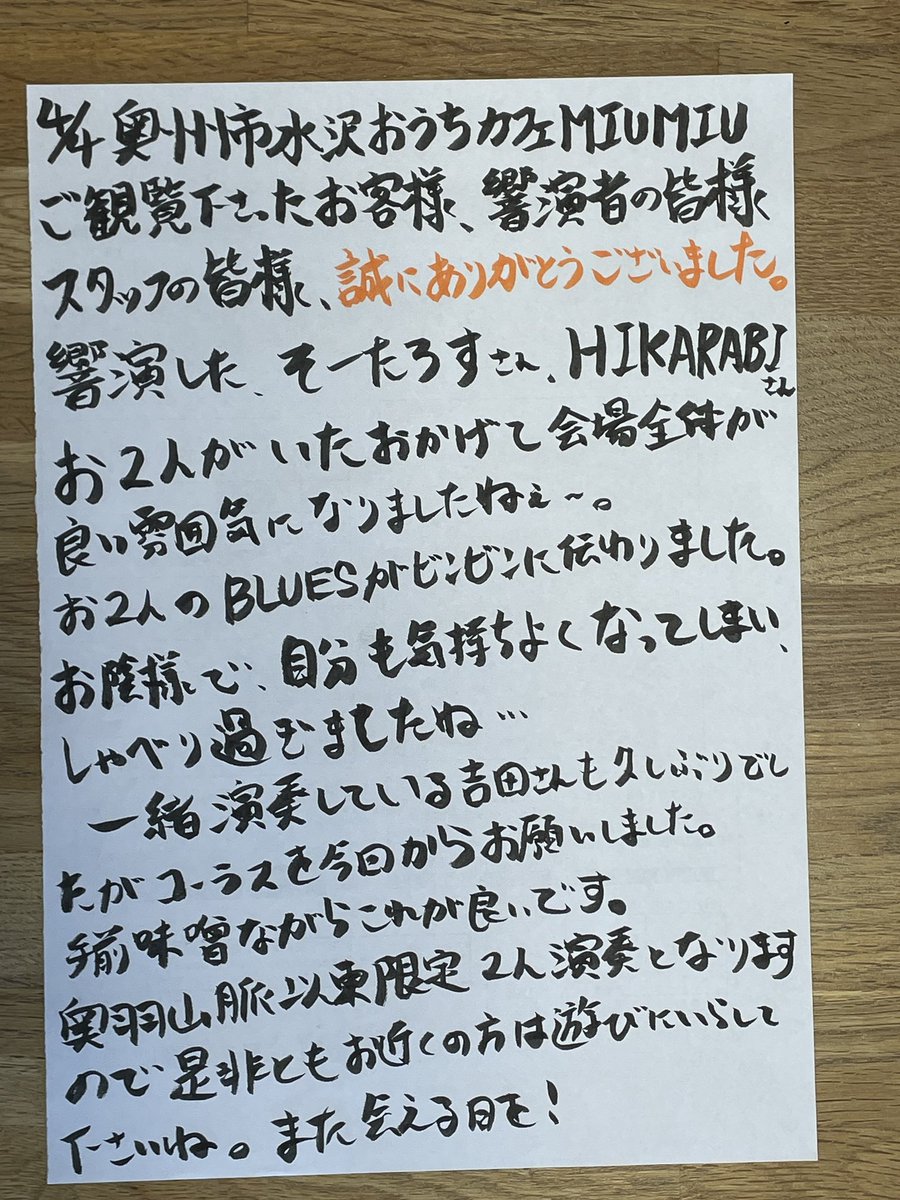 4/4 奥州市水沢おうちカフェMIUMIU
ご観覧下さったお客様、響演者の皆様
スタッフの皆様、誠にありがとうございました。
響演した、そーたろすさん、HIKARABIさん
お2人がいたおかげで会場全体が
良い雰囲気になりましたねぇ~。
お2人のBLUESがビンビンに伝わりました。
お陰様で、自分も気持ちよくなってしまい、
しゃべり過ぎましたね…
一緒演奏している吉田さんも久しぶりでし
たがコーラスを今回からお願いしました。
手前味噌ながらこれが良いです。
奥羽山脈以東限定2人演奏となります
ので是非ともお近くの方は遊びにいらして
下さいね。また会える日を!